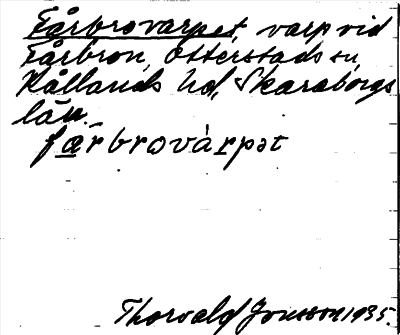 Fårbrovarpet, varp vid
Fårbron, Otterstads sn,
Kållands hd, Skaraborgs
län.
fårbrovàrpət
Thorvald Jonsson 1935.